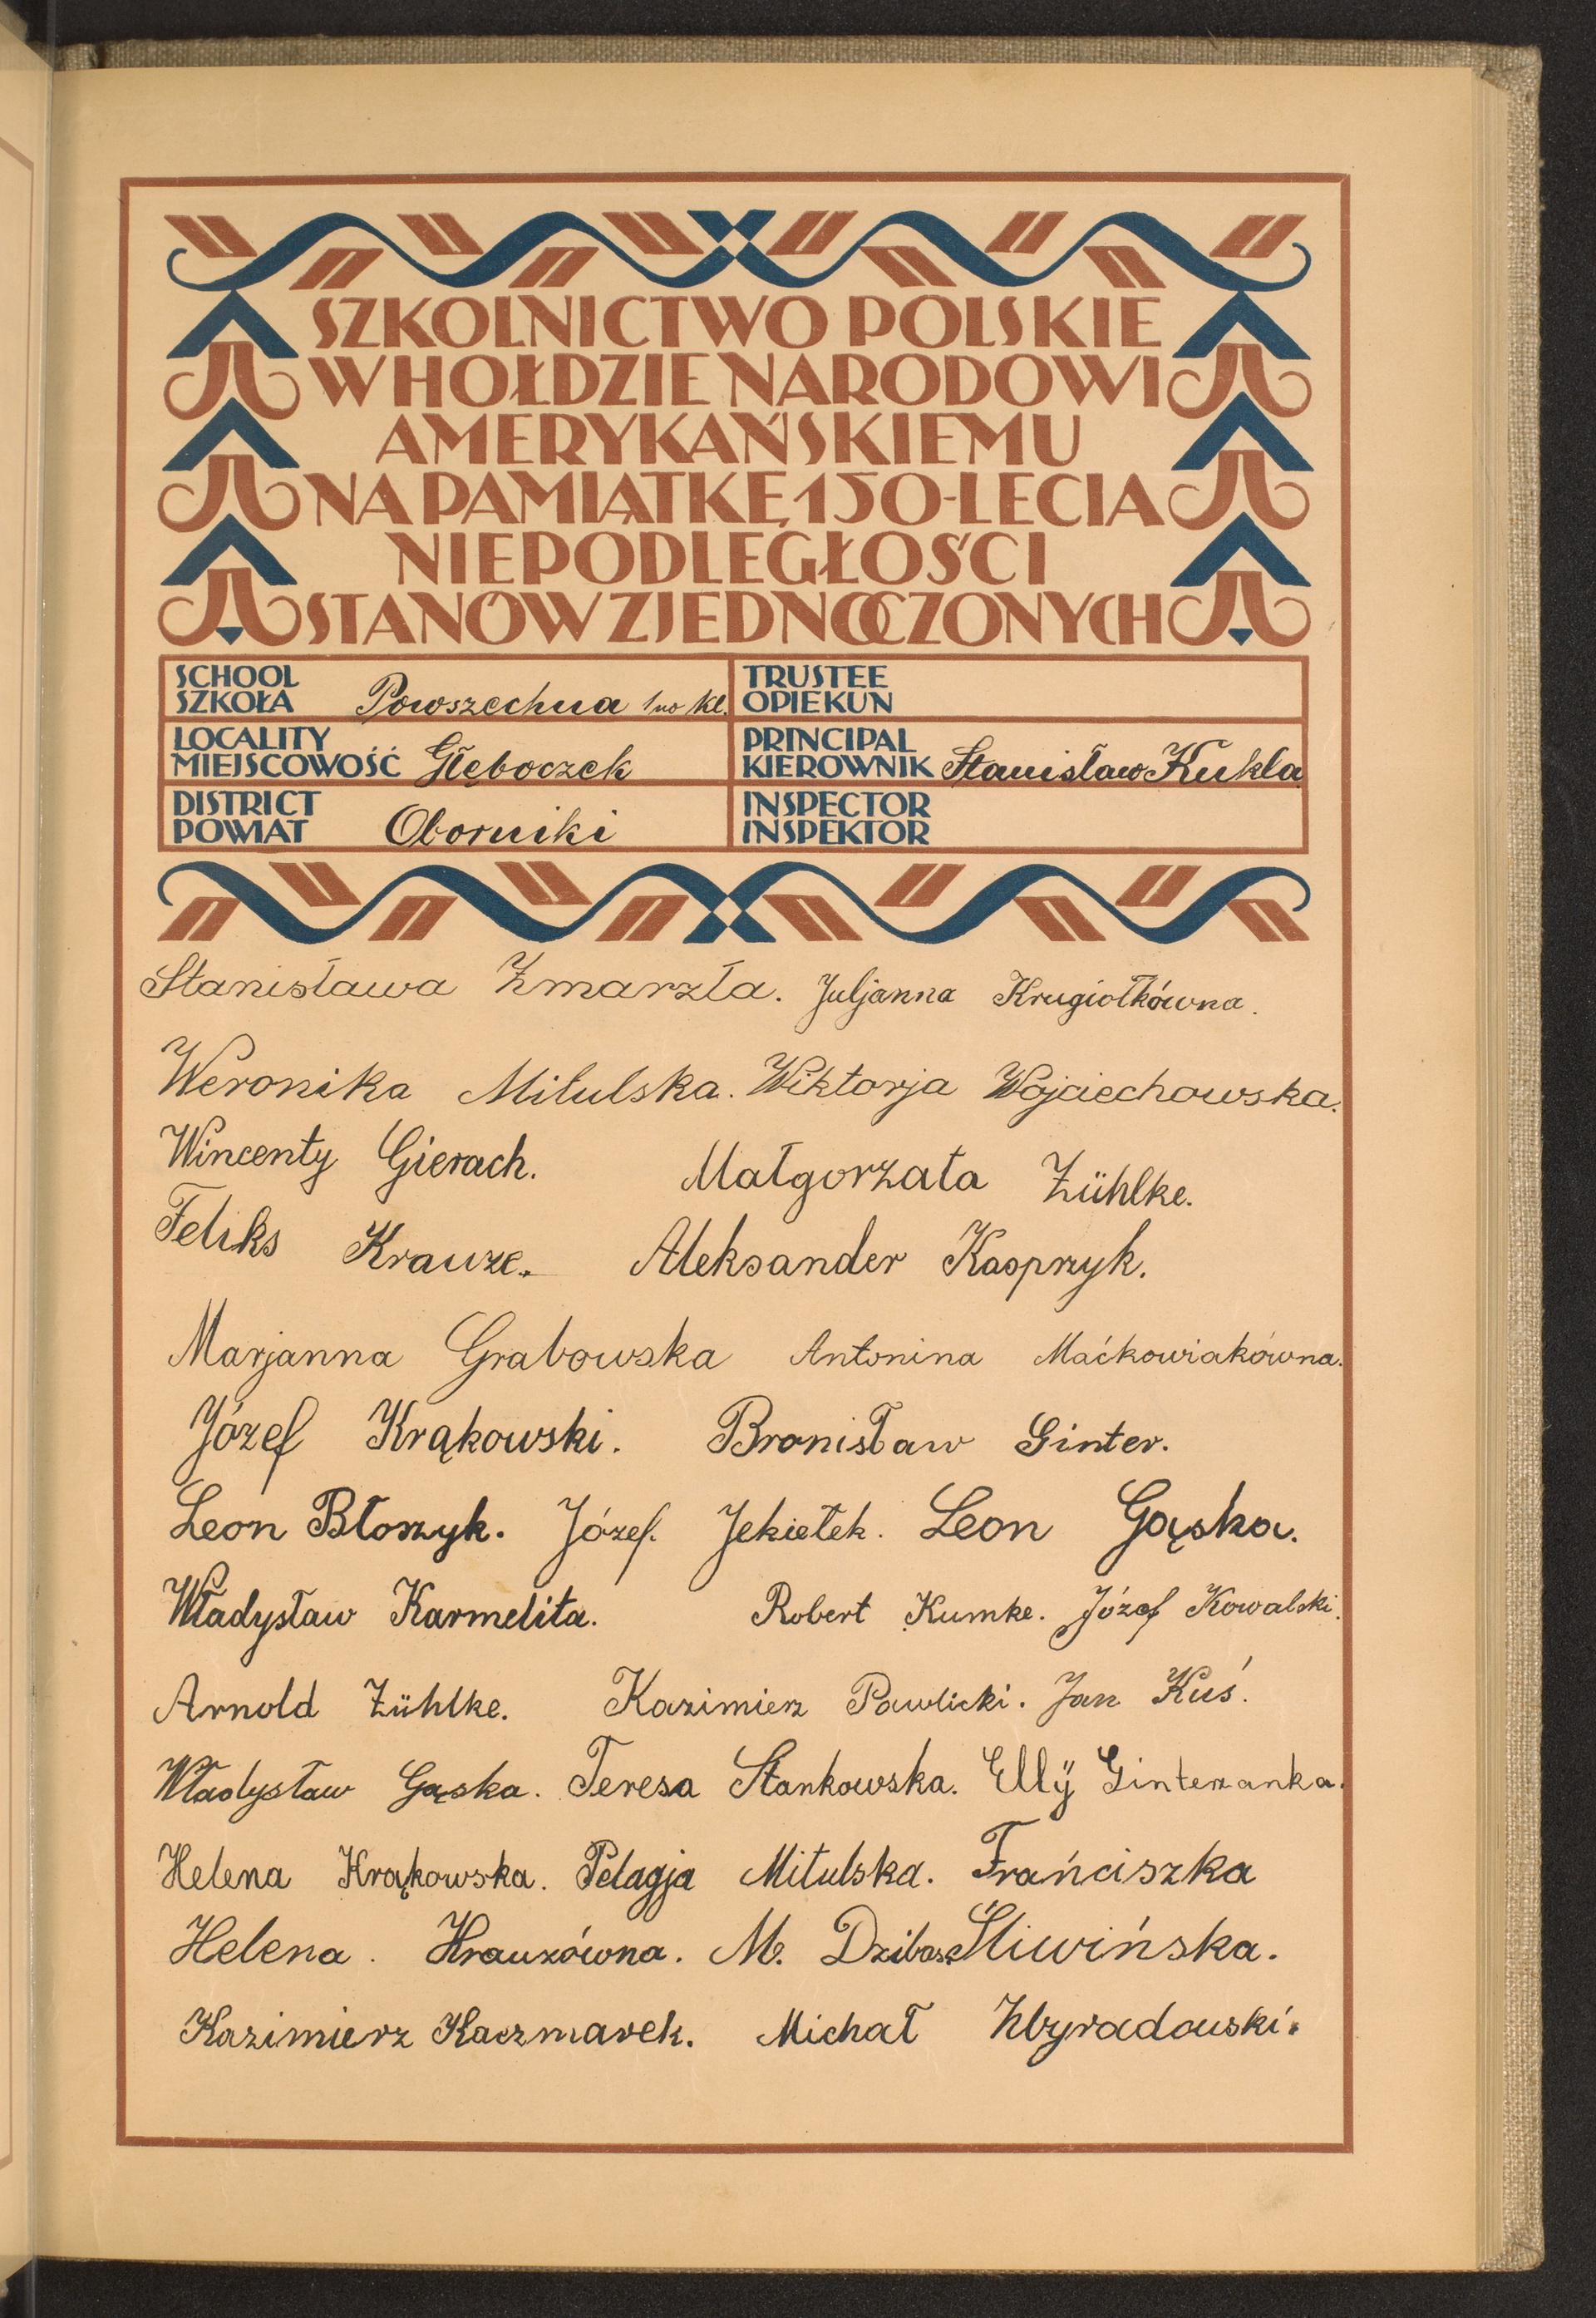 SZKOLNICTWO POLSKIE
W HOŁDZIE NARODOWI
AMERYKAŃSKIEMU
NA PAMIĄTKĘ 150-LECIA
NIEPODLEGŁOŚCI
STANÓW ZJEDNOCZONYCH
SCHOOL
SZKOŁA Powszechna 1no kl.
TRUSTEE
OPIEKUN
LOCALITY
MIEJSCOWOŚĆ Głęboczek
PRINCIPAL
KIEROWNIK Stanisław Kukla
DISTRICT
POWIAT Oborniki
INSPECTOR
INSPEKTOR
Stanisława Zmarzła. Juljanna Krugiołkówna.
Weronika Mitulska. Wiktorja Wojciechowska.
Wincenty Gierach. Małgorzata Zühlke.
Feliks Krauze. Aleksander Kasprzyk.
Marjanna Grabowska Antonina Maćkowiakówna.
Józef Krąkowski. Bronisław Ginter.
Leon Błoszyk. Józef. Jekiełek. Leon Gąska.
Władysław Karmelita. Robert Kumke. Józef Kowalski.
Arnold Zühlke. Kazimierz Pawlicki. Jan Kuś.
Władysław Gąska. Teresa Stankowska. Ellÿ Ginterzanka.
Helena Krąkowska. Pelagja Mitulska. Frańciszka
Helena. Krauzówna. M. Śliwińska.
Kazimierz Kaczmarek. Michał